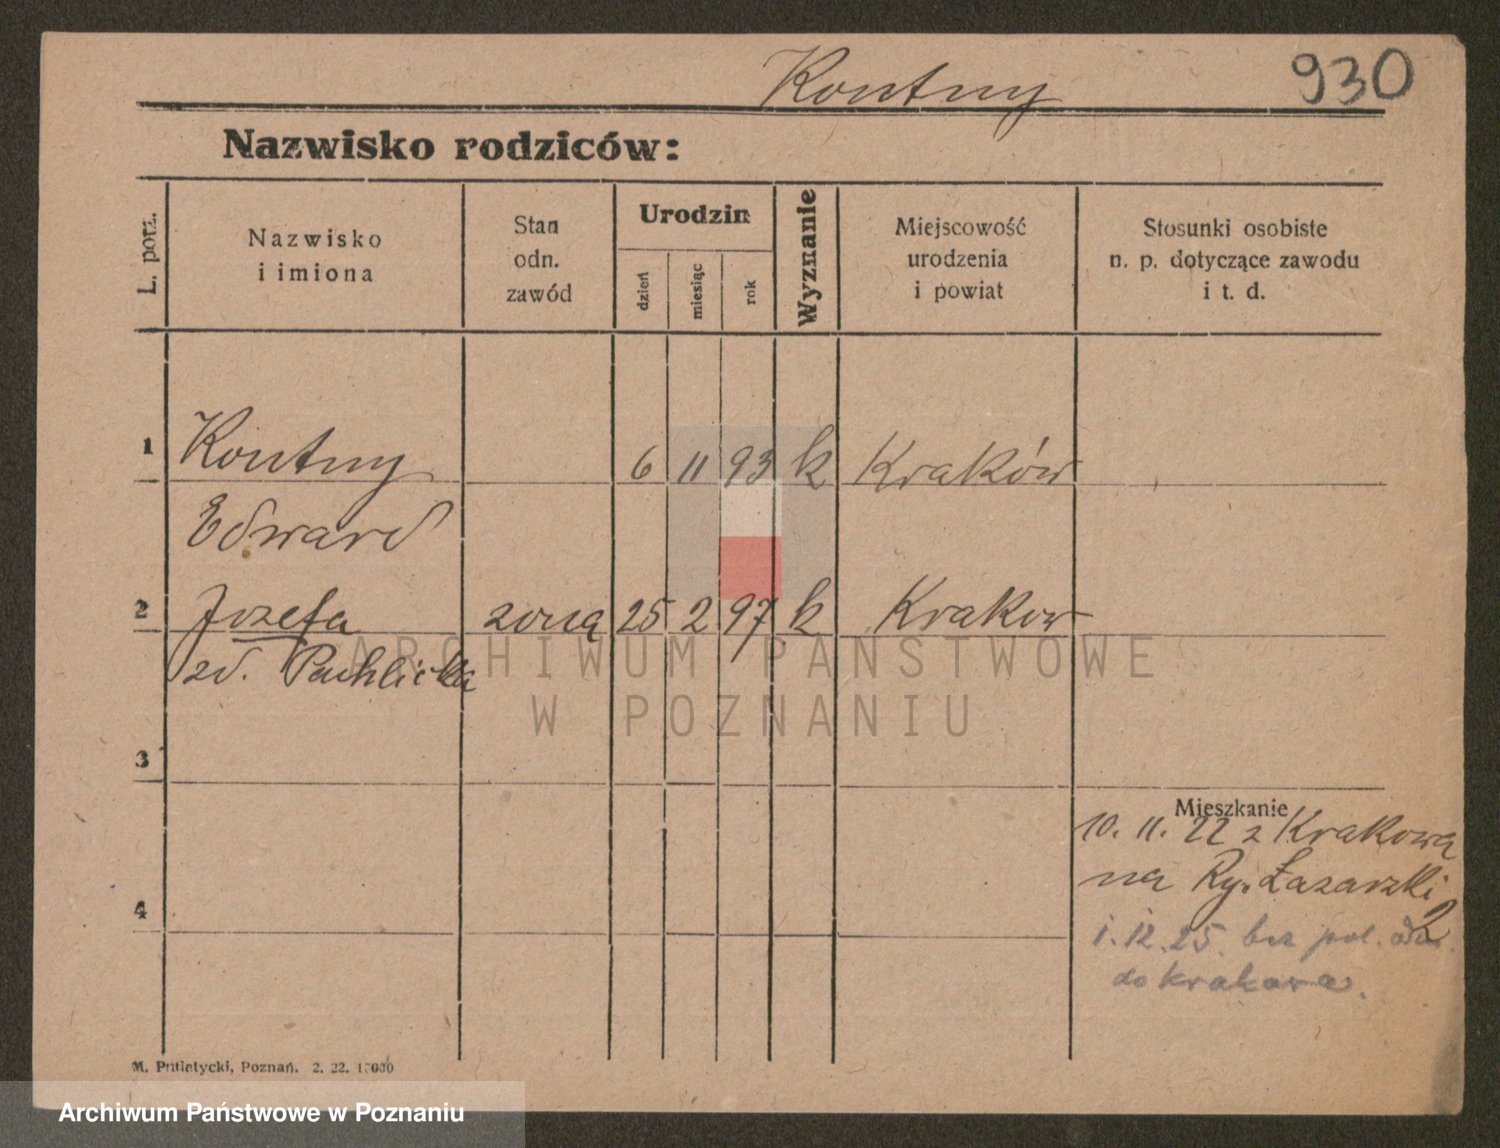 Kontny 930
Nazwisko rodziców:
L. porz.
Nazwisko
i imiona
Stan
odn.
zawód
Urodzin
dzień
miesiąc
rok
Wyznanie
Miejscowość
urodzenia
i powiat
Stosunki osobiste
n. p. dotyczące zawodu
i t. d.
1 Kontny 6 11 93 k Kraków
Edward
2 Józefa zoną 25 2 97 k Krakow
zd. Pachlicka
ARCHIWUM PAŃSTWOWE
W POZNANIU
3
Mieszkanie
10. 11. 22 z Krakowa
na Ry. Łazarski
2
4
1. 12. 25. bez pol. odm.
do Krakowa.
M. Putiatycki, Poznań. 2. 22. 17000
Archiwum Państwowe w Poznaniu